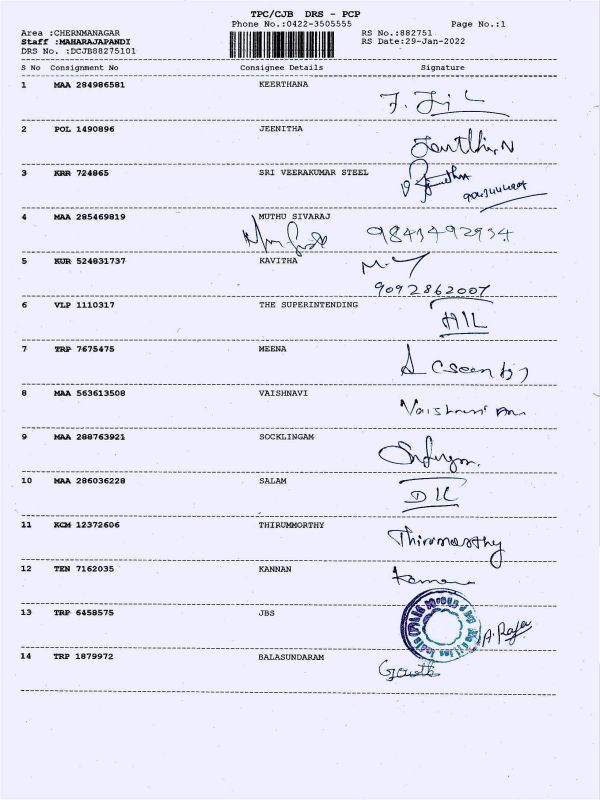 TPC/CJB DRS - PCP
Phone No.:0422-3505555 Page No.:1
Area :CHERNMANAGAR RS No.:882751
Staff :MAHARAJAPANDI RS Date:29-Jan-2022
DRS No. :DCJB88275101
S No Consignment No Consignee Details Signature
1 MAA 284986581 KEERTHANA
2 POL 1490896 JEENITHA
3 KRR 724865 SRI VEERAKUMAR STEEL
4 MAA 285469819 MUTHU SIVARAJ
9843492934
5 KUR 524831737 KAVITHA
9092862007
6 VLP 1110317 THE SUPERINTENDING
7 TRP 7675475 MEENA
8 MAA 563613508 VAISHNAVI
Vaishnavi
9 MAA 288763921 SOCKLINGAM
10 MAA 286036228 SALAM
11 KCM 12372606 THIRUMMORTHY
Thirumoorthy
12 TEN 7162035 KANNAN
13 TRP 6458575 JBS
A. Raja
14 TRP 1879972 BALASUNDARAM